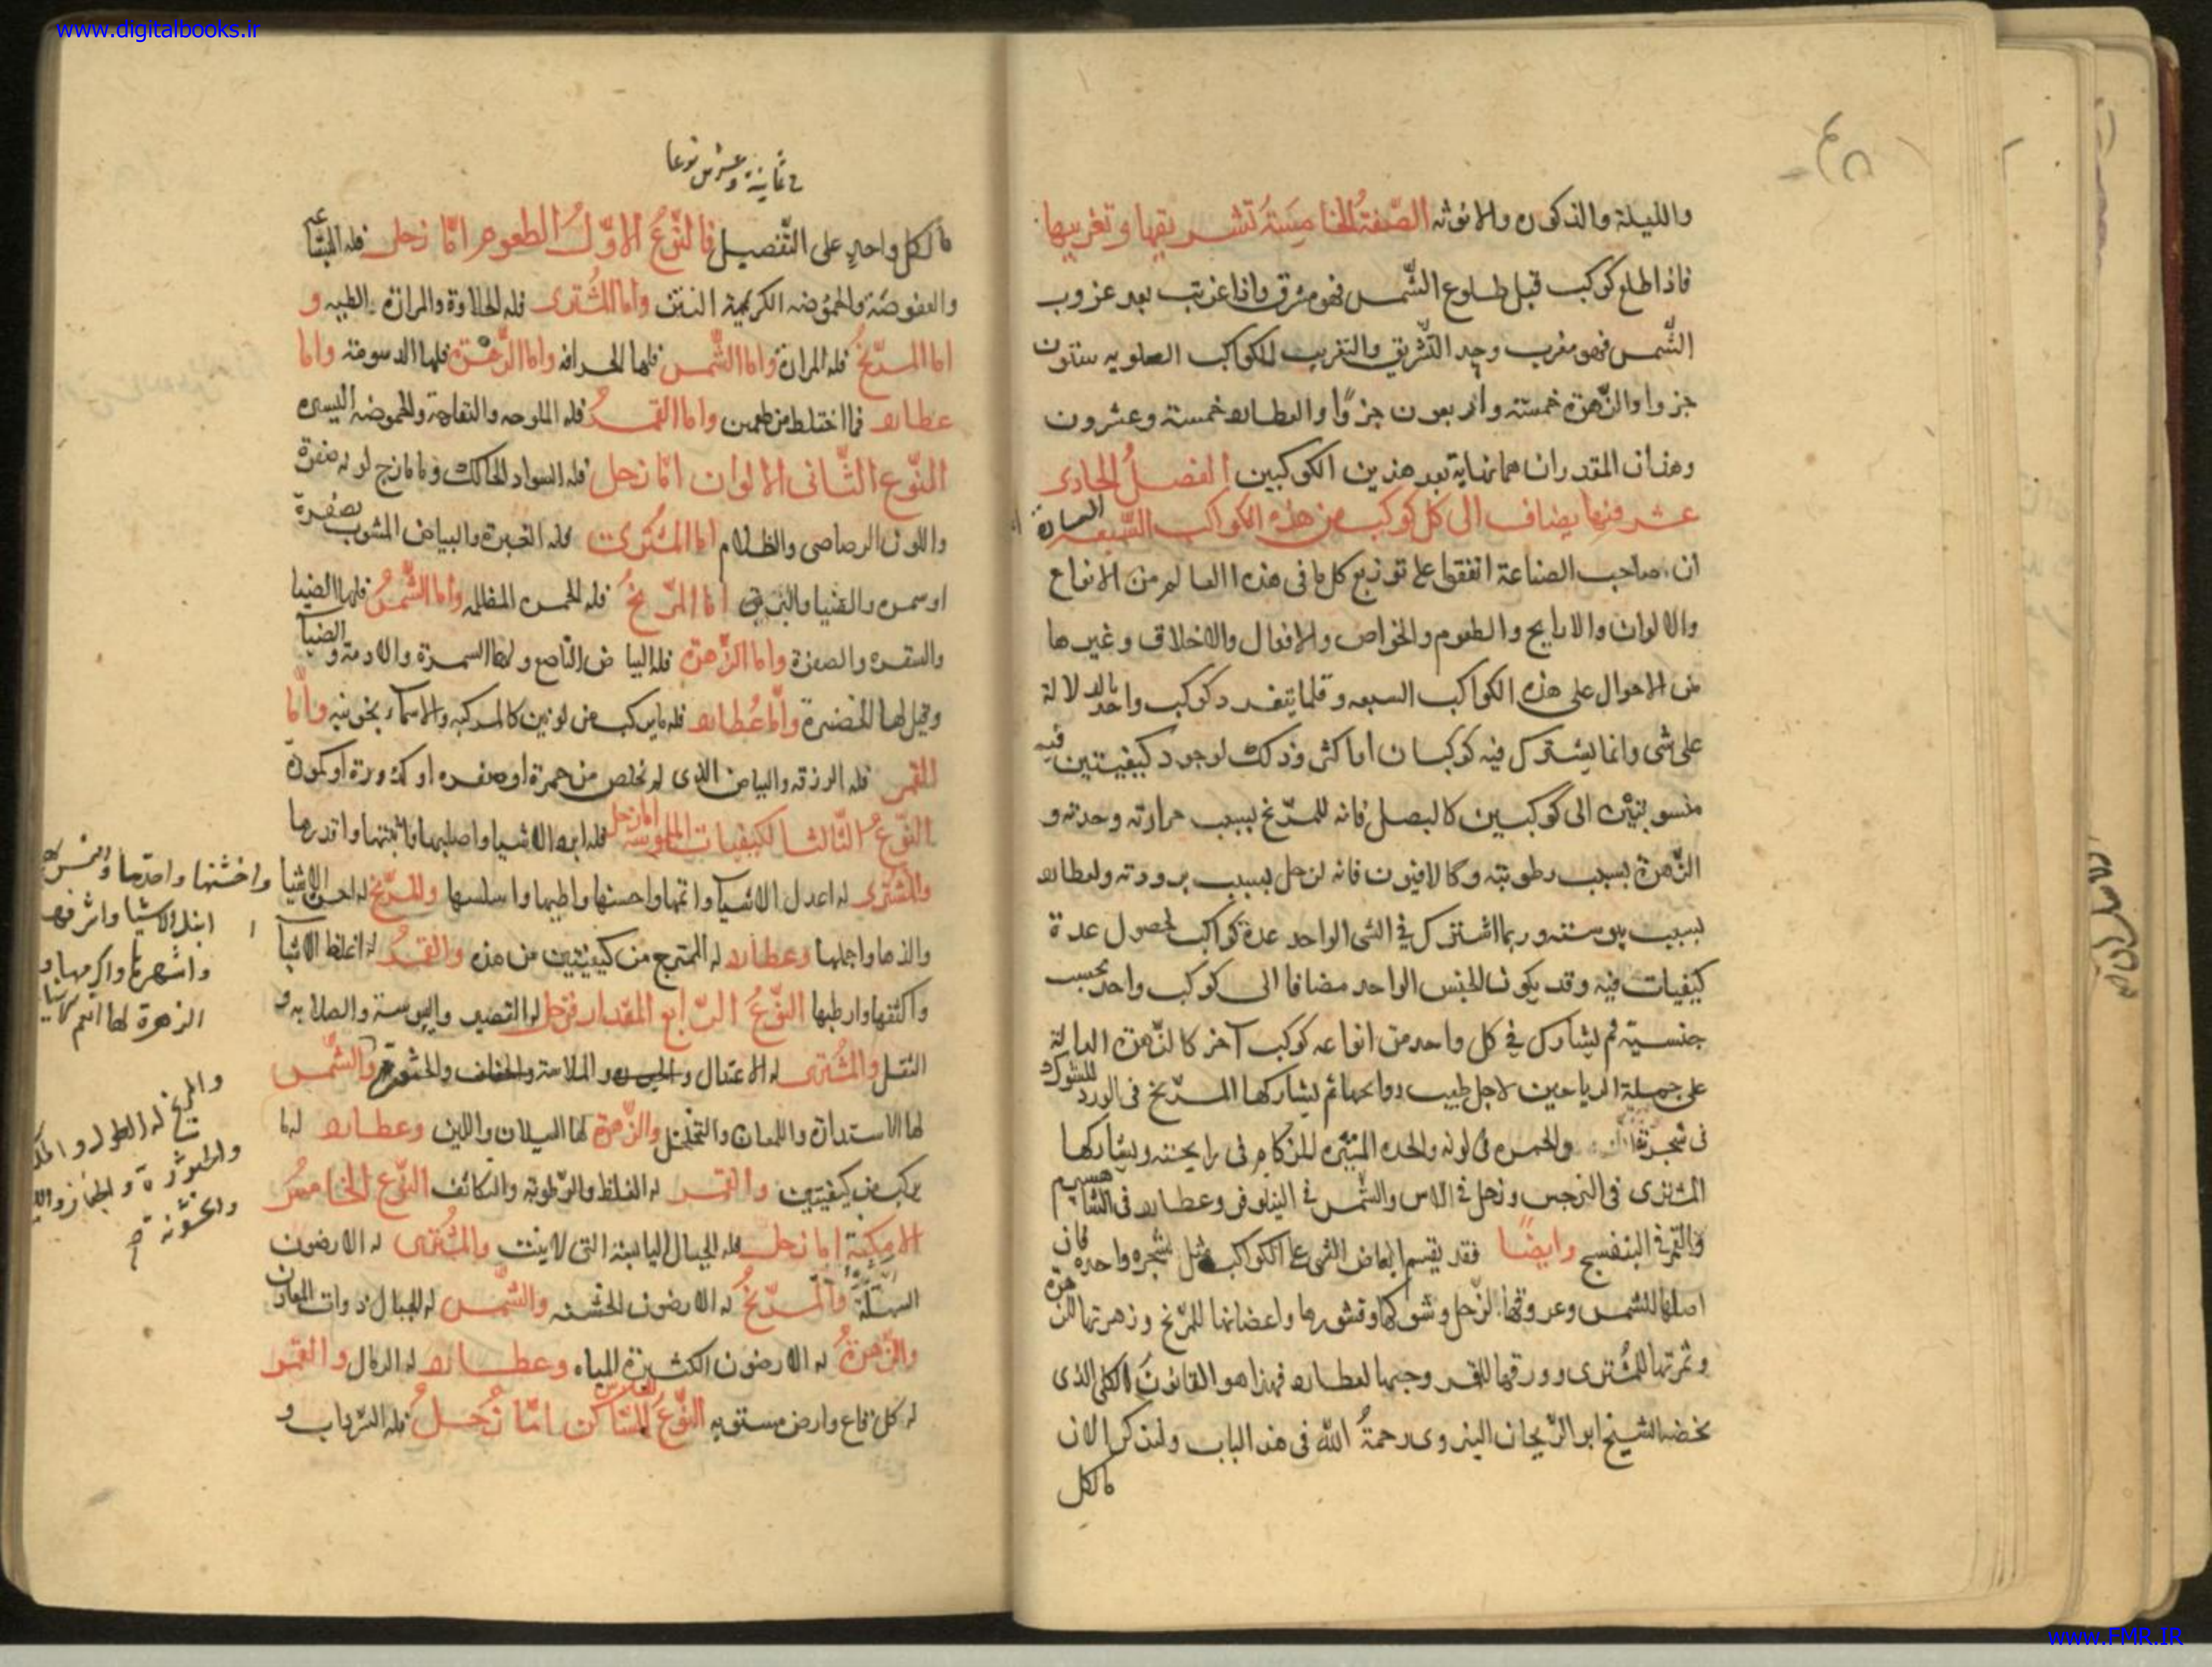 www.digitalbooks.ir
والليلة والذكورة والانوثه الصفة الخامسة تشريقها وتغريبها
فاذا طلع كوكب قبل طلوع الشمس فهو مشرق واذا غربت بعد غروب
الشمس فهو مغرب وحد التشريق والتغريب للكواكب العلويه ستون
جزوا والزهرة خمسة واربعون جزوًا والعطارد خمسة وعشرون
وهذان المقدران هما نهاية بعد هذين الكوكبين الفصل الحادى
عشر فيها يضاف الى كل كوكب من هذه الكواكب السبعة السيارة
ان صاحب الصناعة اتفقوا على توزيع كل ما فى هذه العالم من الانواع
والالوان والارايح والطعوم والخواص والافعال والاخلاق وغيرها
من الاحوال على هذه الكواكب السبعه وقلما يتفرد كوكب واحد بالدلالة
على شى وانما يشترك فيه كوكبان او اكثر وذلك لوجود كيفيتين فيه
منسوبتين الى كوكبين كالبصل فانه للمريخ بسبب حرارته وحدته و
الزهرة بسبب رطوبته وكالافيون فانه لزحل بسبب برودته ولعطارد
بسبب يبوسته وربما اشترك في الشى الواحد عدة كواكب لحصول عدة
كيفيات فيه وقد يكون الجنس الواحد مضافا الى كوكب واحد بحسب
جنسيته ثم يشارك في كل واحد من انواعه كوكب آخر كالزهرة الدالة
على جملة الرياحين لاجل طيب روايحها ثم يشاركها المريخ فى الورد للشوك
فى شجرته والحمرة فى لونه والحده المثيره للزكام فى رايحته ويشاركها
المشترى فى النرجس وزحل فى الاس والشمس فى النيلوفر وعطارد فى الشاهسپرم
والقمر فى البنفسج وايضًا فقد يقسم ابعاض الشى على الكواكب مثل شجره واحده فان
اصلها للشمس وعروقها لزحل وشوكها وقشورها واعضانها للمريخ وزهرتها للزهرة
وثمرتها للمشترى وورقها للقمر وحبها لعطارد فهذا هو القانون الكلى الذى
الشيخ ابو الريحان البيروى رحمة الله فى هذا الباب ولنذكر الان
ما لكل
في ثمانية وعشرين نوعا
ما لكل واحد على التفصيل فالنوع الاول الطعوم اما زحل فله البشاعة
والعفوصة والحموضه الكريهة النتن واما المشترى فله الحلاوة والمرارة الطيبه و
اما المريخ فله المرارة واما الشمس فلها الحرافه واما الزهرة فلها الدسومة واما
عطارد فما اختلط من طعمين واما القمر فله الملوحه والتفاهة والحموضه اليسيره
النوع الثانى الالوان اما زحل فله السواد الحالك وما مازج لونه صفرة
واللون الرصاصى والظلام اما المشترى فله الغبرة والبياض المشوب بصفرة
اوسمرة والضيا والبريق اما المريخ فله الحمرة المظلمه واما الشمس فلها الضيا
والشقره والصفرة واما الزهرة فله البياض الناصع ولها السمرة والادمة والضيآ
وقيل لها الخضرة واما عطارد فله ما يركب من لونين كالمركبه والاسمآء بخونيه واما
القمر فله الزرقه والبياض الذى لم تخلص من حمرة او صفره او كدورة او كمودة
النوع الثالث الكيفيات الملموسه اما زحل فله ابرد الاشيا واصلبها وانتنها واقدرها
والمشترى له اعدل الاشيآء واتمها واحسنها واطيبها واسلسها والمريخ له احر الاشيا واخشنها واحدها
والذها واجملها وعطارد له الممتزج من كيفيتين من هذه والقمر له اغلظ الاشيآ
واكثفها وارطبها النوع الرابع المقدار فزحل له القصر واليبوسة والصلابه و
الثقل والمشترى له الاعتدال والملاسة والشمس
لها الاستدارة واللمعان والتخلخل والزهرة لها السيلان واللين وعطارد له ما
يركب من كيفيتين والقمر له الغلظ والرطوبة والتكاثف النوع الخامس
الامكنة اما زحل فله الجبال اليابسة التى لا ينبت والمشترى له الارضون
السهلة والمريخ له الارضون الخشنه والشمس له الجبال ذوات المعادن
والزهرة له الارضون الكثيرة المياه وعطارد له الرمال والقمر
له كل قاع وارض مستويه النوع السادس المساكن اما زحل فله السرداب و
ابتل الاشيا واشرفها
واشهرها واكرمها و
الزهرة لها انعم الاشيا
والمريخ له الطول و
والخشونة
www.FMR.IR